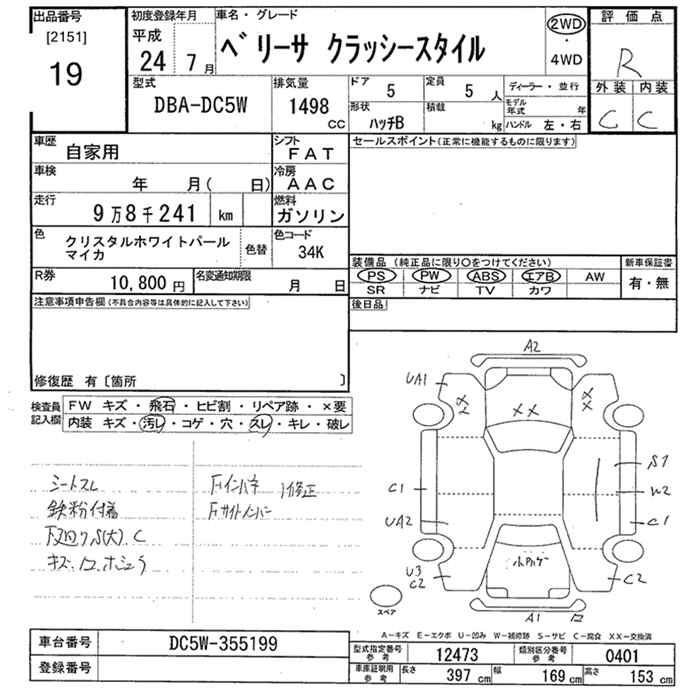 出品番号
[2151]
19
初度登録年月
平成
24 7月
車名・グレード
ベリーサ クラッシースタイル
2WD
・
4WD
評価点
R
外装 内装
C C
型式
DBA-DC5W
排気量
1498 CC
ドア 5
定員 5 人
形状 ハッチB
積載 kg
ディーラー・並行
モデル年式 年
ハンドル 左・右
車歴 自家用
シフト FAT
車検 年 月( 日)
冷房 AAC
走行 9万8千241 km
燃料 ガソリン
色 クリスタルホワイトパール
マイカ
色替
色コード 34K
R券 10,800円
名変通知期限 月 日
セールスポイント(正常に機能するものに限ります)
装備品(純正品に限り○をつけてください)
新車保証書
PS PW ABS エアB AW
SR ナビ TV カワ
有・無
後日品
注意事項申告欄(不具合内容等は具体的に記入して下さい)
修復歴 有〔箇所 〕
検査員
記入欄
FW キズ・飛石・ヒビ割・リペア跡・×要
内装 キズ・汚レ・コゲ・穴・スレ・キレ・破レ
シートスレ
鉄粉付着
下廻りS(大).C
Fインパネ
Fサイドメンバー
修正
A2
UA1
XX
XX
XX
S1
W2
C1
C1
UA2
U3
C2
C2
A1
スペア
A-キズ E-エクボ U-凹み W-補修跡 S-サビ C-腐食 XX-交換済
車台番号 DC5W-355199
登録番号
型式指定番号
参考
12473
類別区分番号
参考
0401
車庫証明用
参考
長さ 397 cm
幅 169 cm
高さ 153 cm